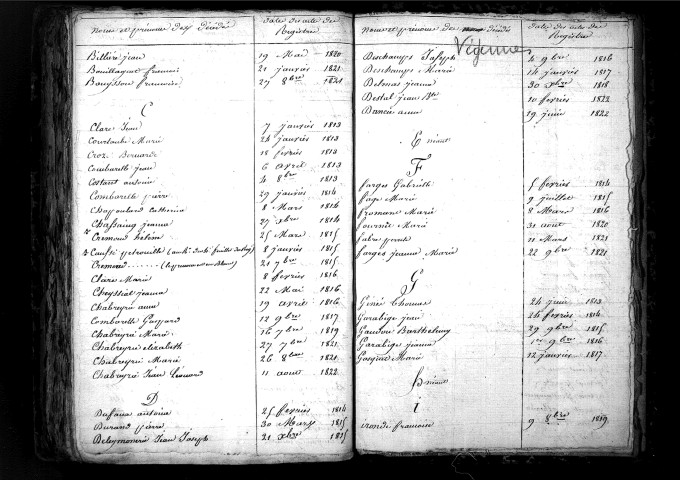 Noms et prénoms des décédé
Date des actes du Registre
Billard jean 19 Mai 1820
Bouillaguet francois 21 janvier 1821
Bouysson francoise 27 8bre 1821
C
Clare Jean 7 janvier 1813
Courtaube Marie 24 janvier 1813
Croz Bernarde 18 fevrier 1813
Combarelle jean 6 avril 1813
Costant antoine 4 8bre 1813
Comborelle pierre 29 janvier 1814
Chapoulard Catherine 8 Mars 1814
Chassaing jeanne 27 xbre 1814
Cremoud hélène 25 Mars 1815
8 janvier 1815
Cremoud 21 7bre 1815
Clare Marie 8 fevrier 1816
Cheyssial jeanne 22 Mai 1816
Chabreyrie anne 19 avril 1816
Comborelle Gaspard 12 9bre 1817
Chabreyrie Marie 16 7bre 1819
Chabreyrie elizabeth 27 7bre 1821
Chabreyrie Marie 26 8bre 1821
Chabreyrie Jean Léonard 11 aout 1822
D
Dufaux antoine 25 fevrier 1814
Durand pierre 30 Mars 1815
Deleymonerie Jean Joseph 21 xbre 1815
Noms et prénoms des décédés
Date des actes du Registre
Végennes
Deschamps Joseph 4 9bre 1816
Deschamps Marie 14 janvier 1817
Delmas jeanne 30 xbre 1818
Destal jean Bte 10 fevrier 1822
Dancie anne 19 juin 1822
E néant
F
Farges Gabrielle 5 fevrier 1814
Fage Marie 9 juillet 1815
Fromane Marie 8 Mars 1816
Fournié Marie 31 aout 1820
11 Mars 1821
Farges jeanne Marie 22 9bre 1821
G
Génié Thomas 24 juin 1813
Garabige jean 26 fevrier 1814
Gauvou Barthelemy 29 9bre 1815
Garabige jeanne 1er 9bre 1816
Gaspar Marie 12 janvier 1817
H néant
I
Jronde francoise 9 8bre 1819